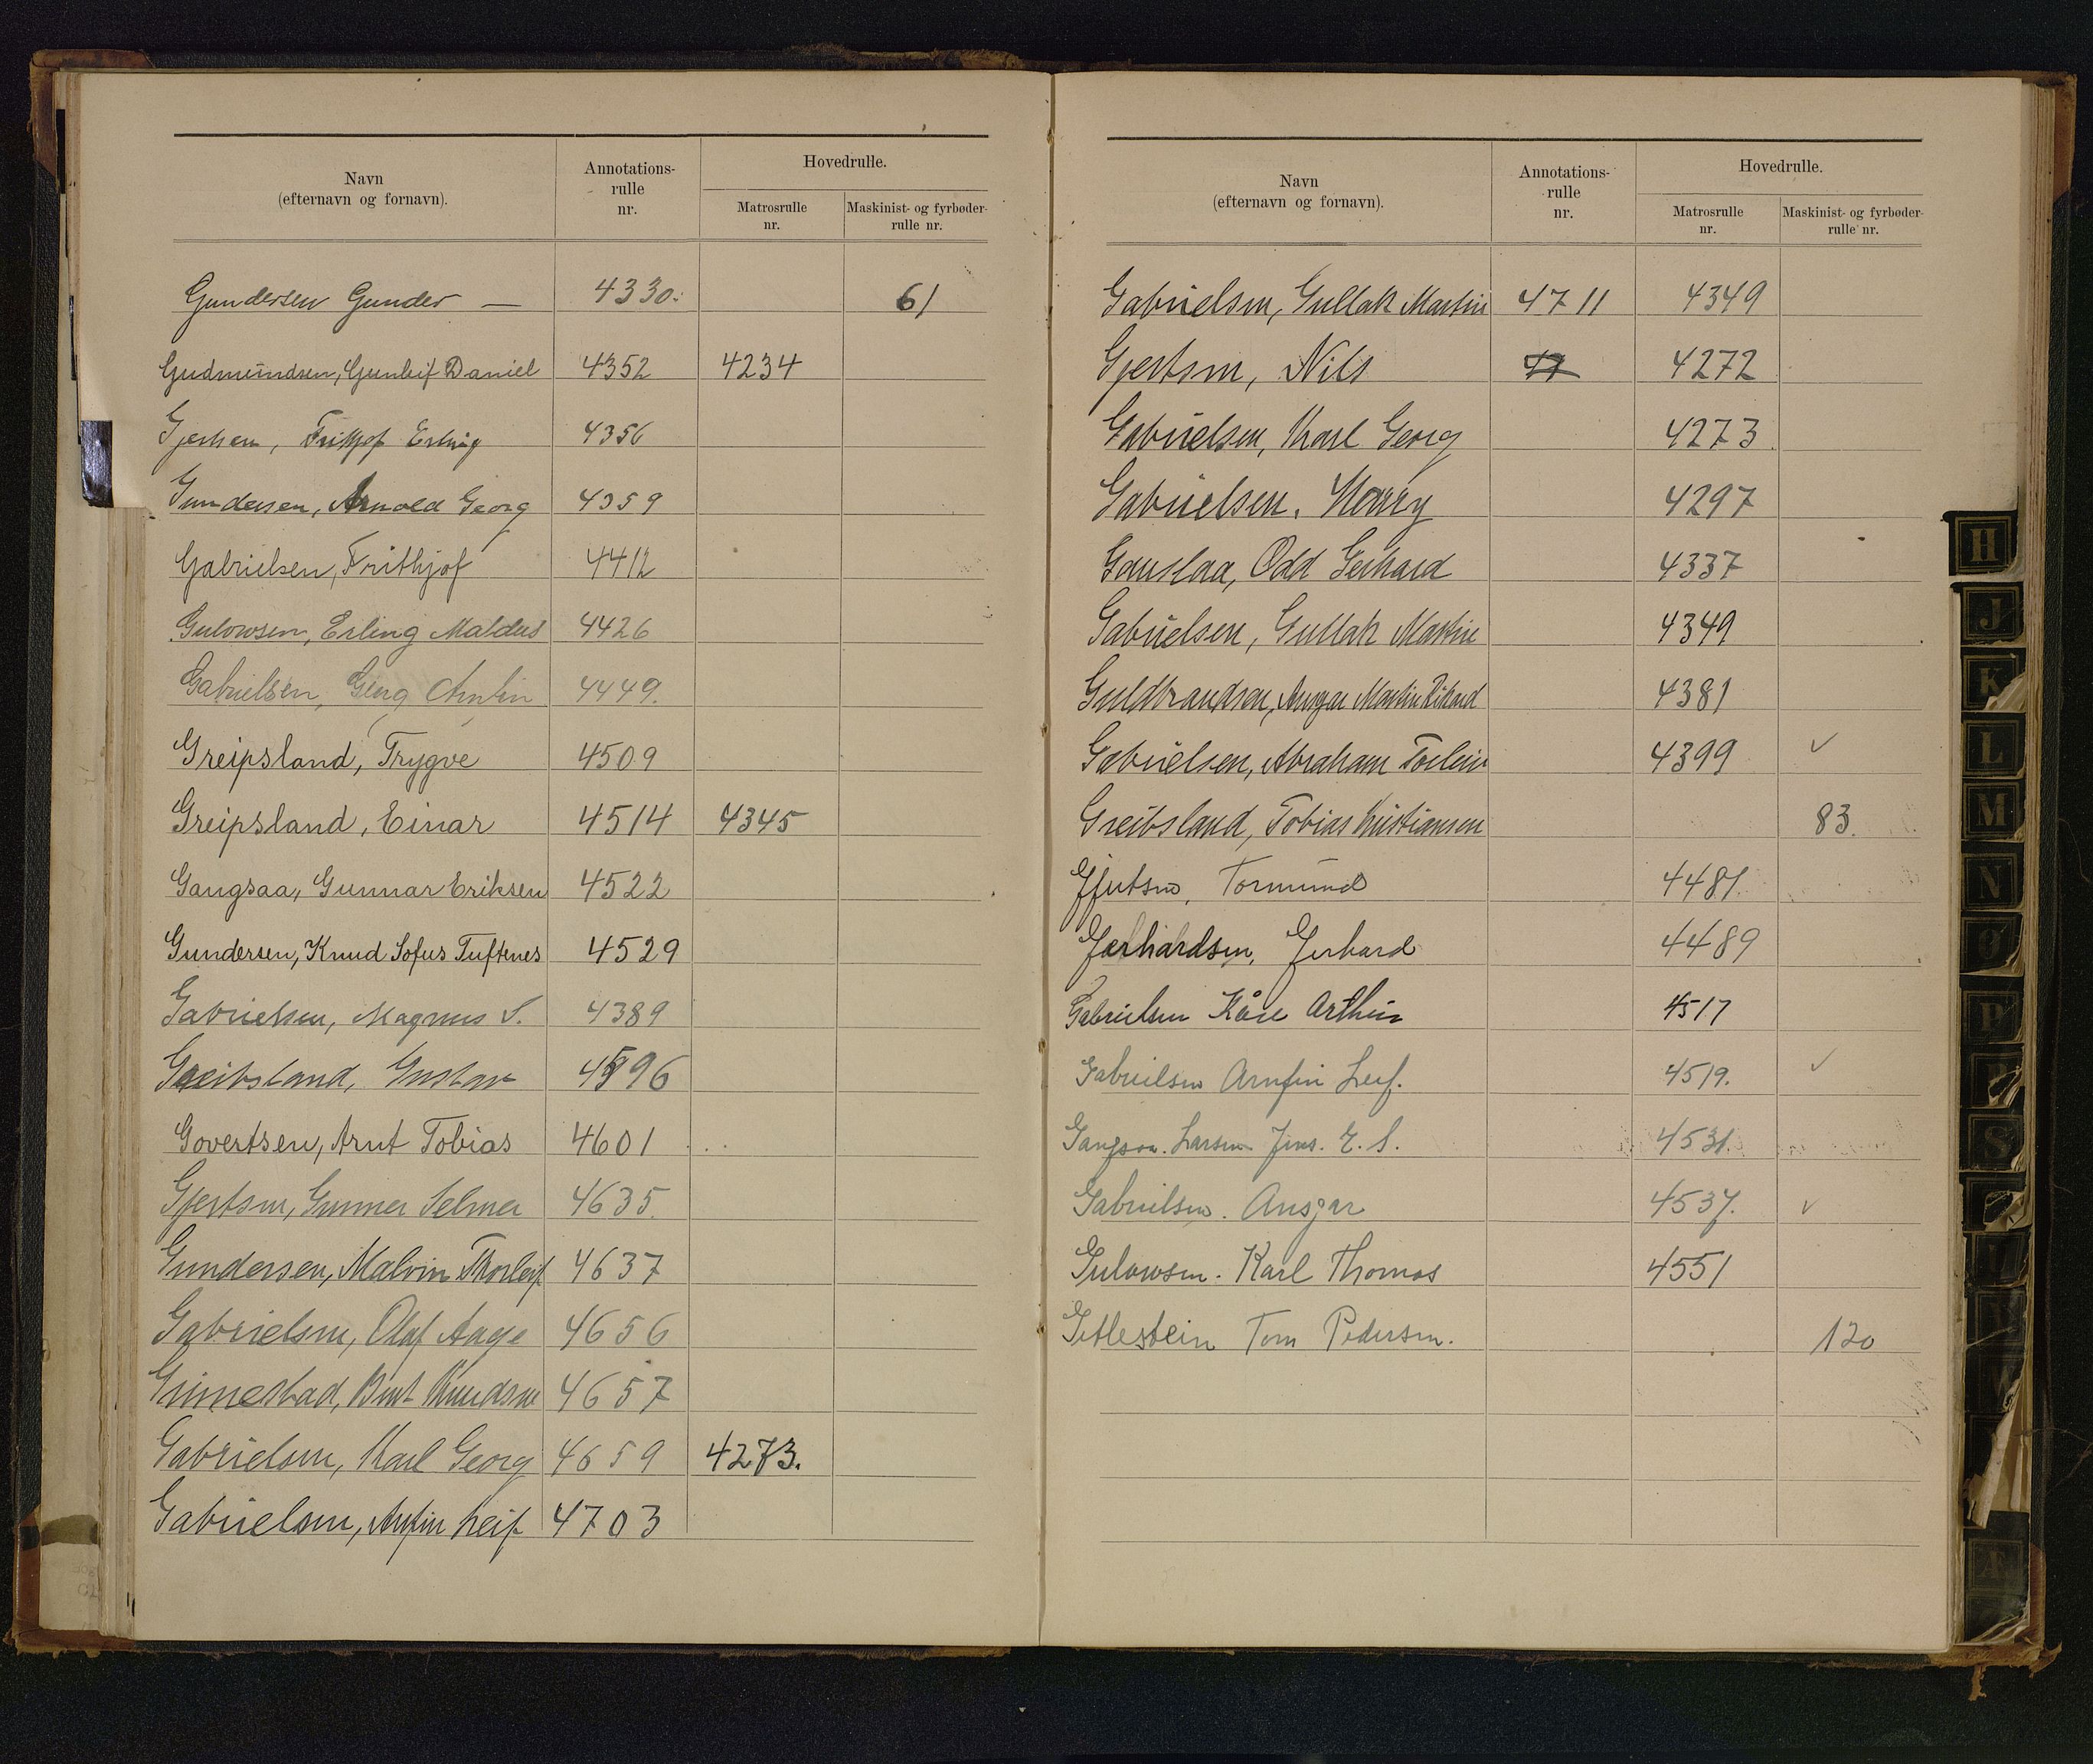 Navn
(efternavn og fornavn).
Annotations-
rulle
nr.
Hovedrulle.
Matrosrulle
nr.
Maskinist- og fyrbøder-
rulle nr.
Gundersen Gunder — 4330. 61
Gudmundsen, Gunleif Daniel 4352 4234
Gjertsen, Frithjof Erling 4356
Gundersen, Arnold Georg 4359
Gabrielsen, Frithjof 4412
Gulowsen, Erling Maldus 4426
Gabrielsen, Georg 4449.
Greipsland, Trygve 4509
Greipsland, Einar 4514 4345
Gangsaa, Gunnar Eriksen 4522
Gundersen, Knud Sofus Tuftenes 4529
Gabrielsen, Magnus S. 4389
Greibsland, Gustav 4596
Govertsen, Arnt Tobias 4601
Gjertsen, Gunnar Selmer 4635.
Gundersen, Malvin Thorleif 4637
Gabrielsen, Olaf Aage 4656
Grimestad, Bent Knudsen 4657
Gabrielsen, Karl Georg 4659 4273.
Gabrielsen, Arnfin Leif 4703
Navn
(efternavn og fornavn).
Annotations-
rulle
nr.
Hovedrulle.
Matrosrulle
nr.
Maskinist- og fyrbøder-
rulle nr.
Gabrielsen, Gullak Martin 4711 4349
Gjertsen, Nils 47 4272
Gabrielsen, Karl Georg 4273
Gabrielsen, Harry 4297
Gauslaa, Odd Gerhard 4337
Gabrielsen, Gullak Martin 4349
Guldbrandsen, Ansgar Martin Rikard 4381
Gabrielsen, Abraham Torleiv 4399 ✓
Greibsland, Tobias Kristiansen 83.
Gjertsen, Tormund 4481.
Gerhardsen, Gerhard 4489
Gabrielsen Kåre Arthur 4517
Gabrielsen Arnfin Leif. 4519. ✓
Gangsaa. Larsen Jens. E. S. 4531.
Gabrielsen. Ansgar 4537. ✓
Gulowsen. Karl Thomas 4551
Getlestein Tom Pedersen. 120
H
J
K
L
M
N
O
P
R
S